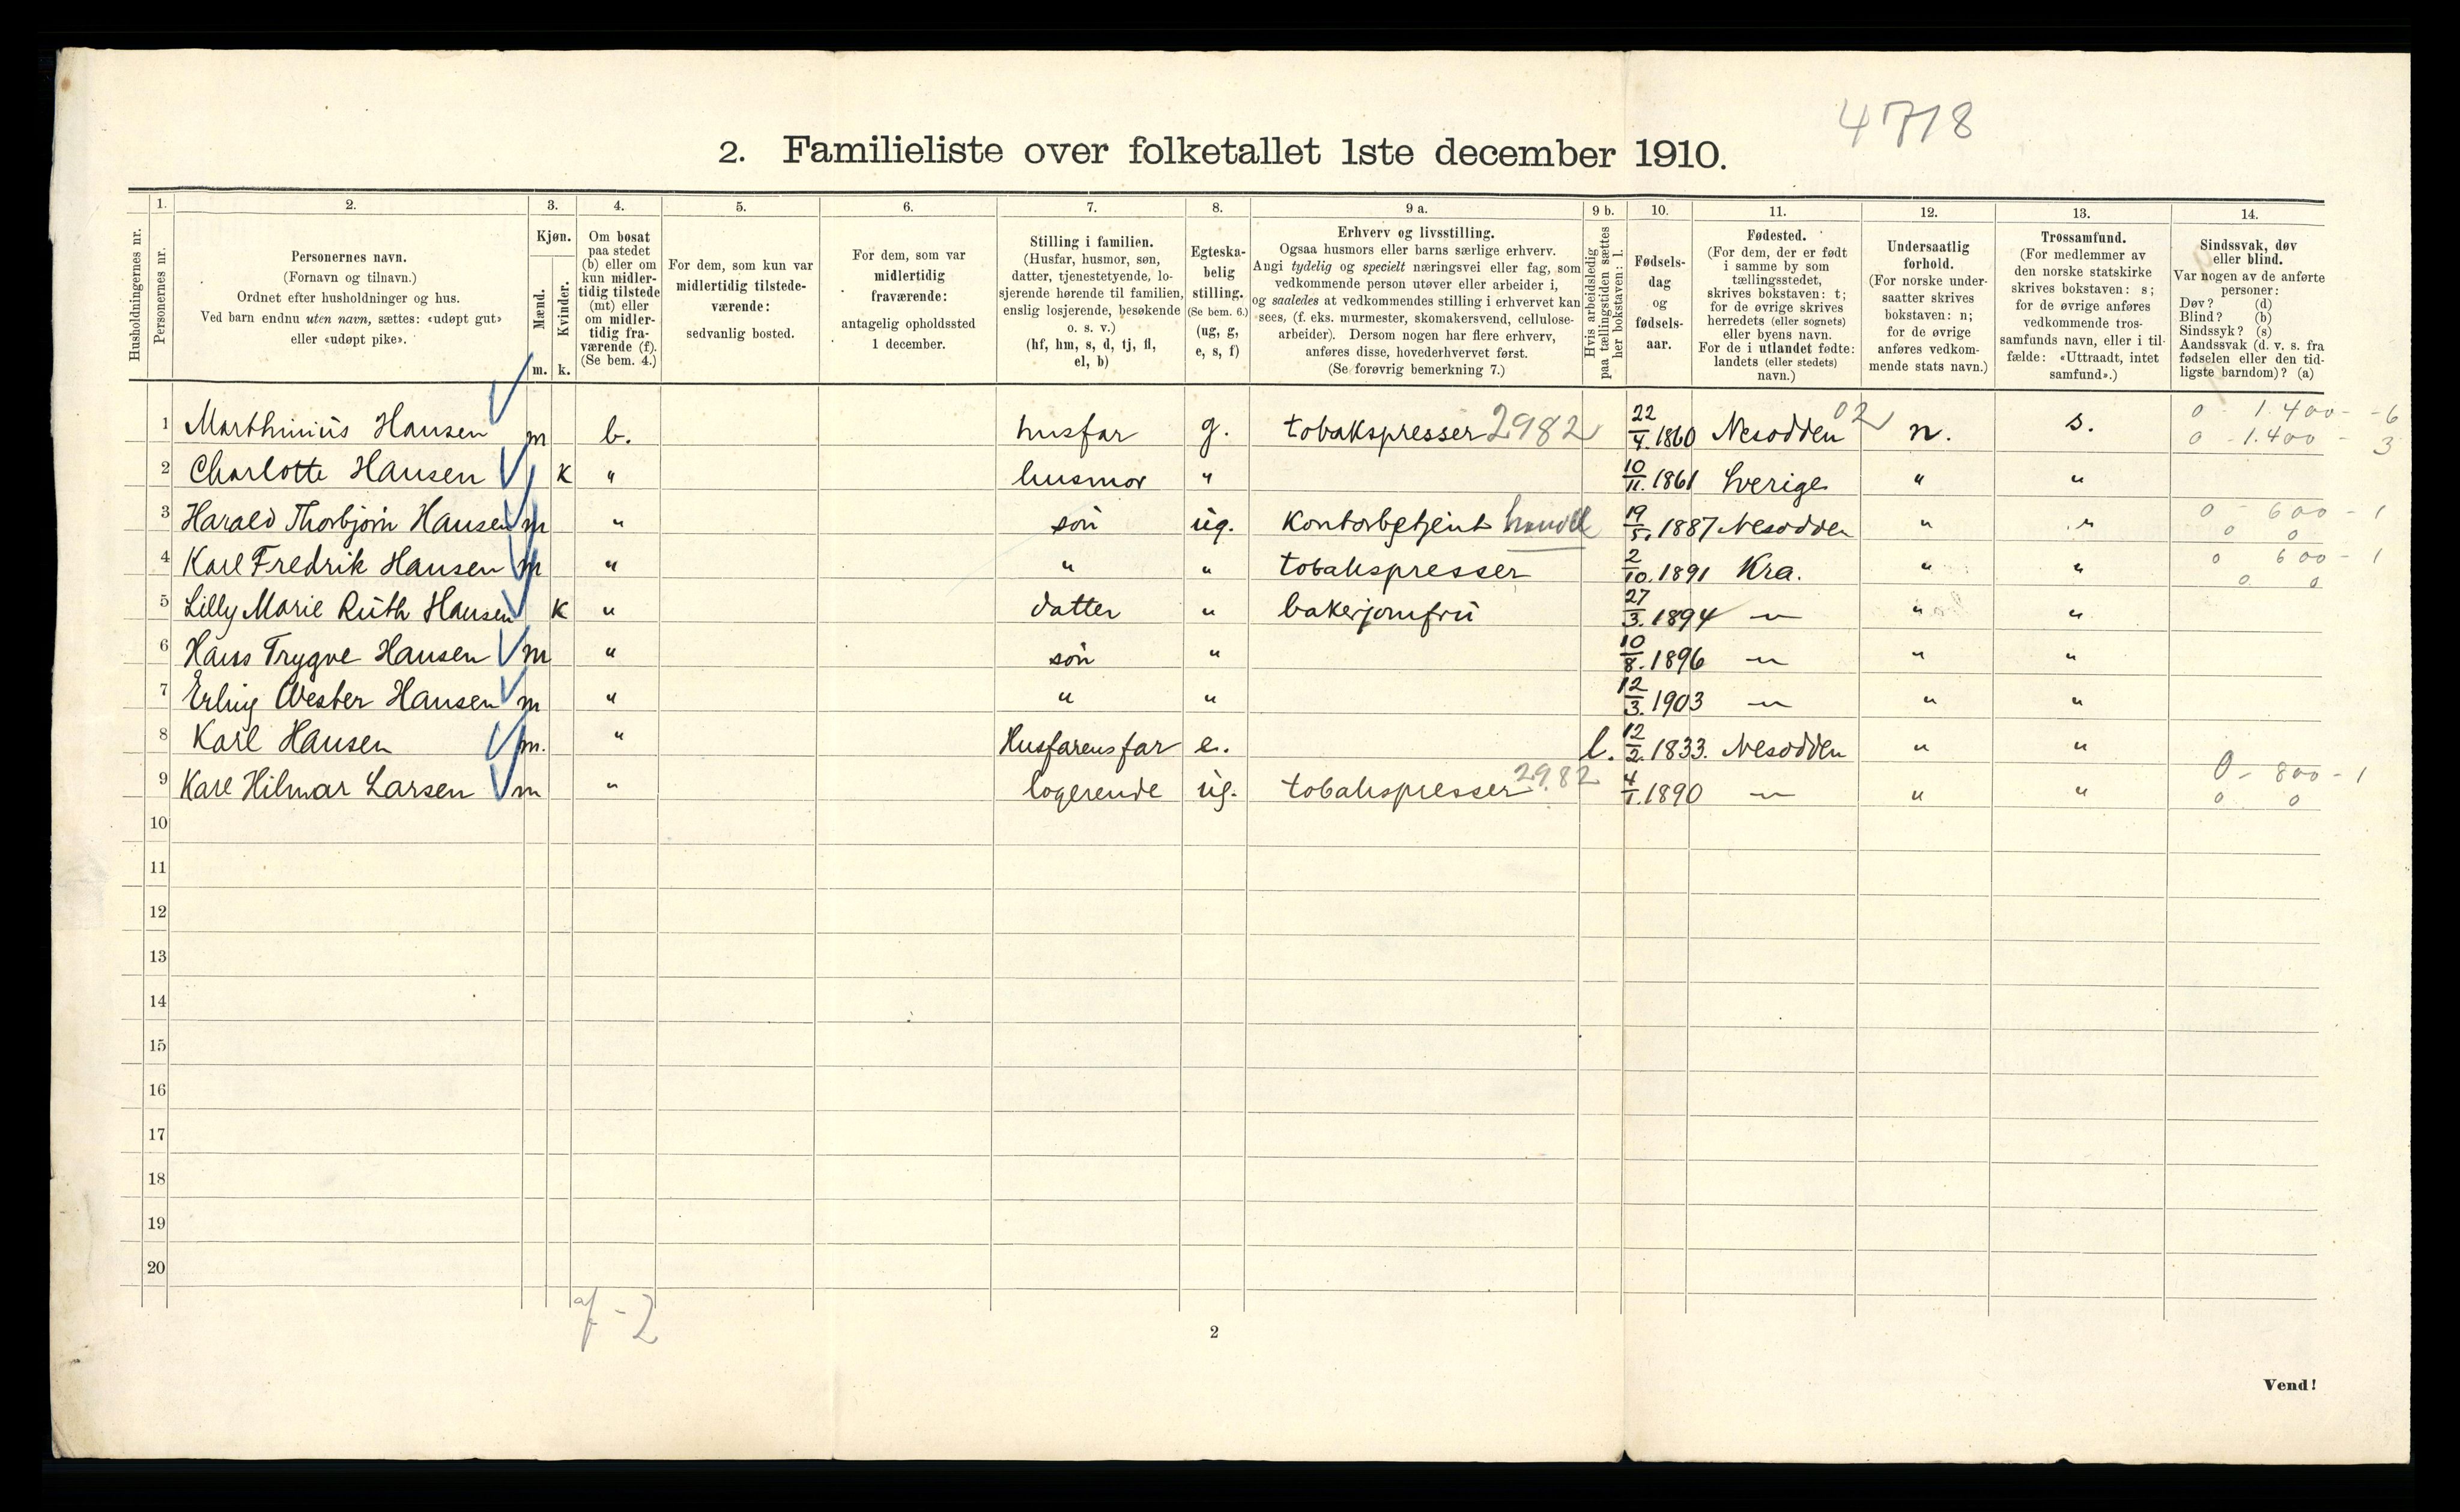 4718
2. Familieliste over folketallet 1ste december 1910.
Husholdningernes nr.
1.
Personernes nr.
2.
Personernes navn.
(Fornavn og tilnavn.)
Ordnet efter husholdninger og hus.
Ved barn endnu uten navn, sættes: «udøpt gut»
eller «udøpt pike».
3.
Kjøn.
Mænd.
Kvinder.
m. k.
4.
Om bosat
paa stedet
(b) eller om
kun midler-
tidig tilstede
(mt) eller
om midler-
tidig fra-
værende (f).
(Se bem. 4.)
5.
For dem, som kun var
midlertidig tilstede-
værende:
sedvanlig bosted.
6.
For dem, som var
midlertidig
fraværende:
antagelig opholdssted
1 december.
7.
Stilling i familien.
(Husfar, husmor, søn,
datter, tjenestetyende, lo-
sjerende hørende til familien,
enslig losjerende, besøkende
o. s. v.)
(hf, hm, s, d, tj, fl,
el, b)
8.
Egteska-
belig
stilling.
(Se bem. 6.)
(ug, g,
e, s, f)
9 a.
Erhverv og livsstilling.
Ogsaa husmors eller barns særlige erhverv.
Angi tydelig og specielt næringsvei eller fag, som
vedkommende person utøver eller arbeider i,
og saaledes at vedkommendes stilling i erhvervet kan
sees, (f. eks. murmester, skomakersvend, cellulose-
arbeider). Dersom nogen har flere erhverv,
anføres disse, hovederhvervet først.
(Se forøvrig bemerkning 7.)
9 b.
Hvis arbeidsledig
paa tællingstiden sættes
her bokstaven: l.
10.
Fødsels-
dag
og
fødsels-
aar.
11.
Fødested.
(For dem, der er født
i samme by som
tællingsstedet,
skrives bokstaven: t;
for de øvrige skrives
herredets (eller sognets)
eller byens navn.
For de i utlandet fødte:
landets (eller stedets)
navn.)
12.
Undersaatlig
forhold.
(For norske under-
saatter skrives
bokstaven: n;
for de øvrige
anføres vedkom-
mende stats navn.)
13.
Trossamfund.
(For medlemmer av
den norske statskirke
skrives bokstaven: s;
for de øvrige anføres
vedkommende tros-
samfunds navn, eller i til-
fælde: «Uttraadt, intet
samfund».)
14.
Sindssvak, døv
eller blind.
Var nogen av de anførte
personer:
Døv? (d)
Blind? (b)
Sindssyk? (s)
Aandssvak (d. v. s. fra
fødselen eller den tid-
ligste barndom)? (a)
1 Marthinius Hansen m b. husfar g. tobakspresser 2982 22/4. 1860 Nesodden 02 n. s. 0 - 1.400 - 6
0 - 1.400 - 3
2 Charlotte Hansen k " husmor " 10/11. 1861 Sverige " "
3 Harald Thorbjørn Hansen m " søn ug. Kontorbetjent handel 19/5. 1887 Nesodden " " 0 - 600 - 1
0 0
4 Karl Fredrik Hansen m " " " tobakspresser 2/10. 1891 Kra. " " 0 600 - 1
0 0
5 Lilly Marie Ruth Hansen k " datter " bakerjomfru 27/3. 1894 — " — " "
6 Hans Trygve Hansen m " søn " 10/8. 1896 — " — " "
7 Erling Wester Hansen m " " " 12/3. 1903 — " — " "
8 Karl Hansen m. " Husfarens far e. l. 12/2. 1833. Nesodden " "
9 Karl Hilmar Larsen m " logerende ug. tobakspresser 2982 4/1. 1890 — " — " " 0 - 800 - 1
0 0
10
11
12
13
14
15
16
17
18
19
20
2
Vend!